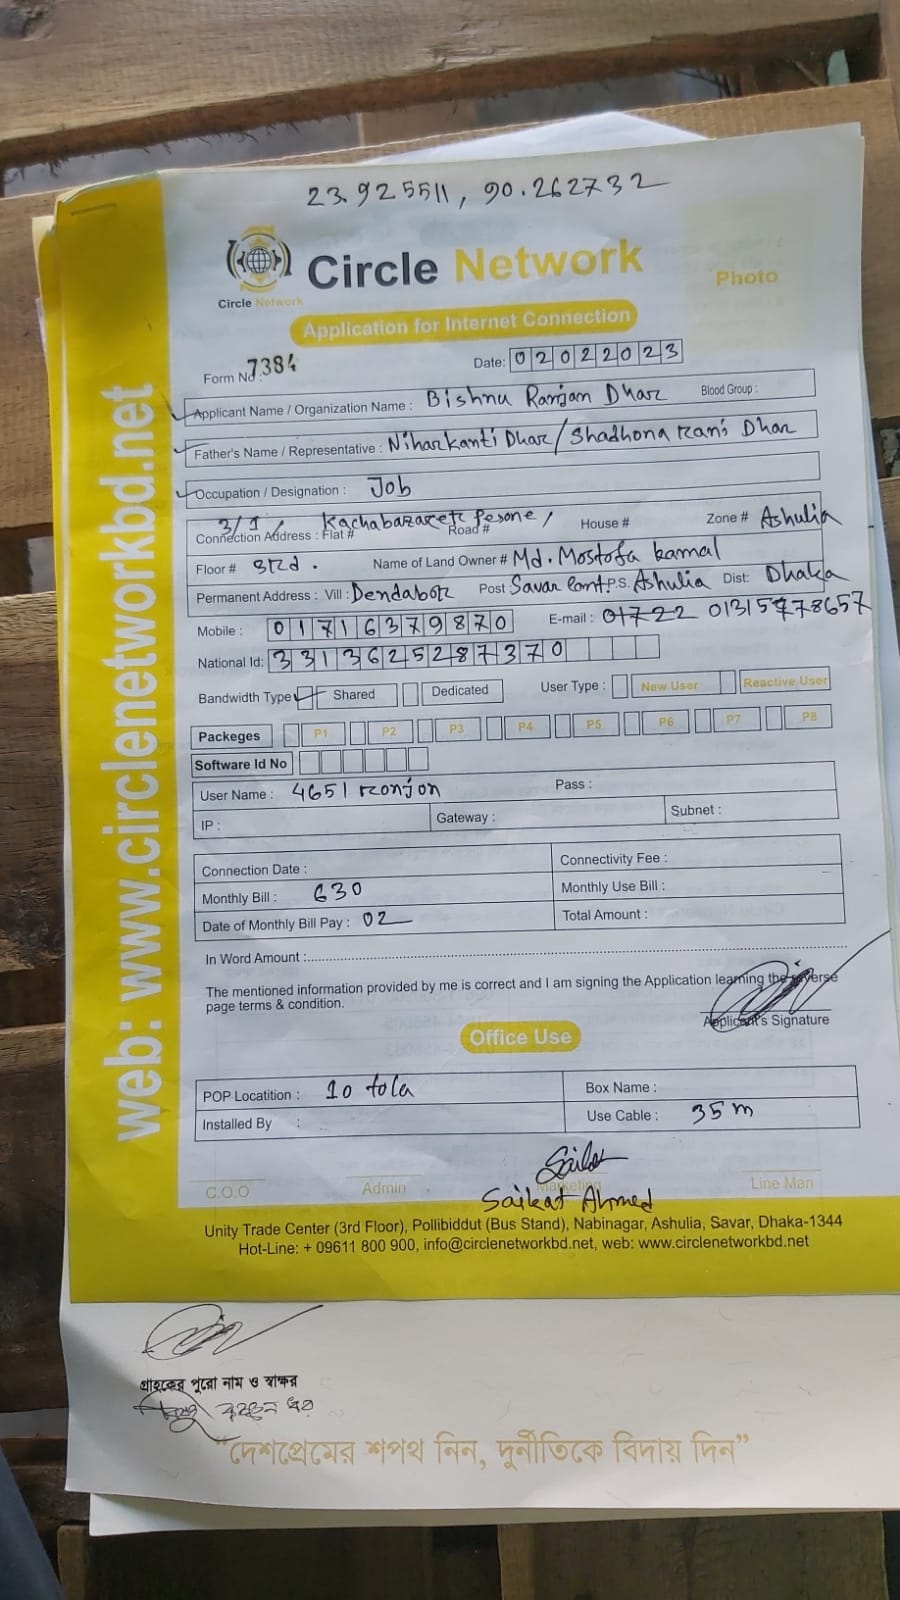 23.925511, 90.262732
Circle Network
Circle Network
Photo
Application for Internet Connection
Form No : 7384
Date: 02022023
Applicant Name / Organization Name : Bishnu Ranjan Dhar Blood Group :
Father's Name / Representative : Niharkanti Dhar / Shadhona Rani Dhar
Occupation / Designation : Job
Connection Address : Flat # 3/1, Kachabazarer Pesone, Road # House # Zone # Ashulia
Floor # 3rd. Name of Land Owner # Md. Mostofa kamal
Permanent Address : Vill : Dendabor Post Savar Cant. P.S. Ashulia Dist: Dhaka
Mobile : 01716379870 E-mail : 01722 01315778657
National Id: 3313625287370
Bandwidth Type Shared Dedicated User Type : New User Reactive User
Packeges P1 P2 P3 P4 P5 P6 P7 P8
Software Id No
User Name : 4651 ronjon Pass :
IP : Gateway : Subnet :
Connection Date : Connectivity Fee :
Monthly Bill : 630 Monthly Use Bill :
Date of Monthly Bill Pay : 02 Total Amount :
In Word Amount :
The mentioned information provided by me is correct and I am signing the Application learning the reverse
page terms & condition.
Applicant's Signature
Office Use
POP Locatition : 10 tola Box Name :
Installed By : Use Cable : 35 m
C.O.O Admin Marketing Line Man
Saikat Ahmed
Unity Trade Center (3rd Floor), Pollibiddut (Bus Stand), Nabinagar, Ashulia, Savar, Dhaka-1344
Hot-Line: + 09611 800 900, info@circlenetworkbd.net, web: www.circlenetworkbd.net
web: www.circlenetworkbd.net
গ্রাহকের পুরো নাম ও স্বাক্ষর
"দেশপ্রেমের শপথ নিন, দুর্নীতিকে বিদায় দিন"